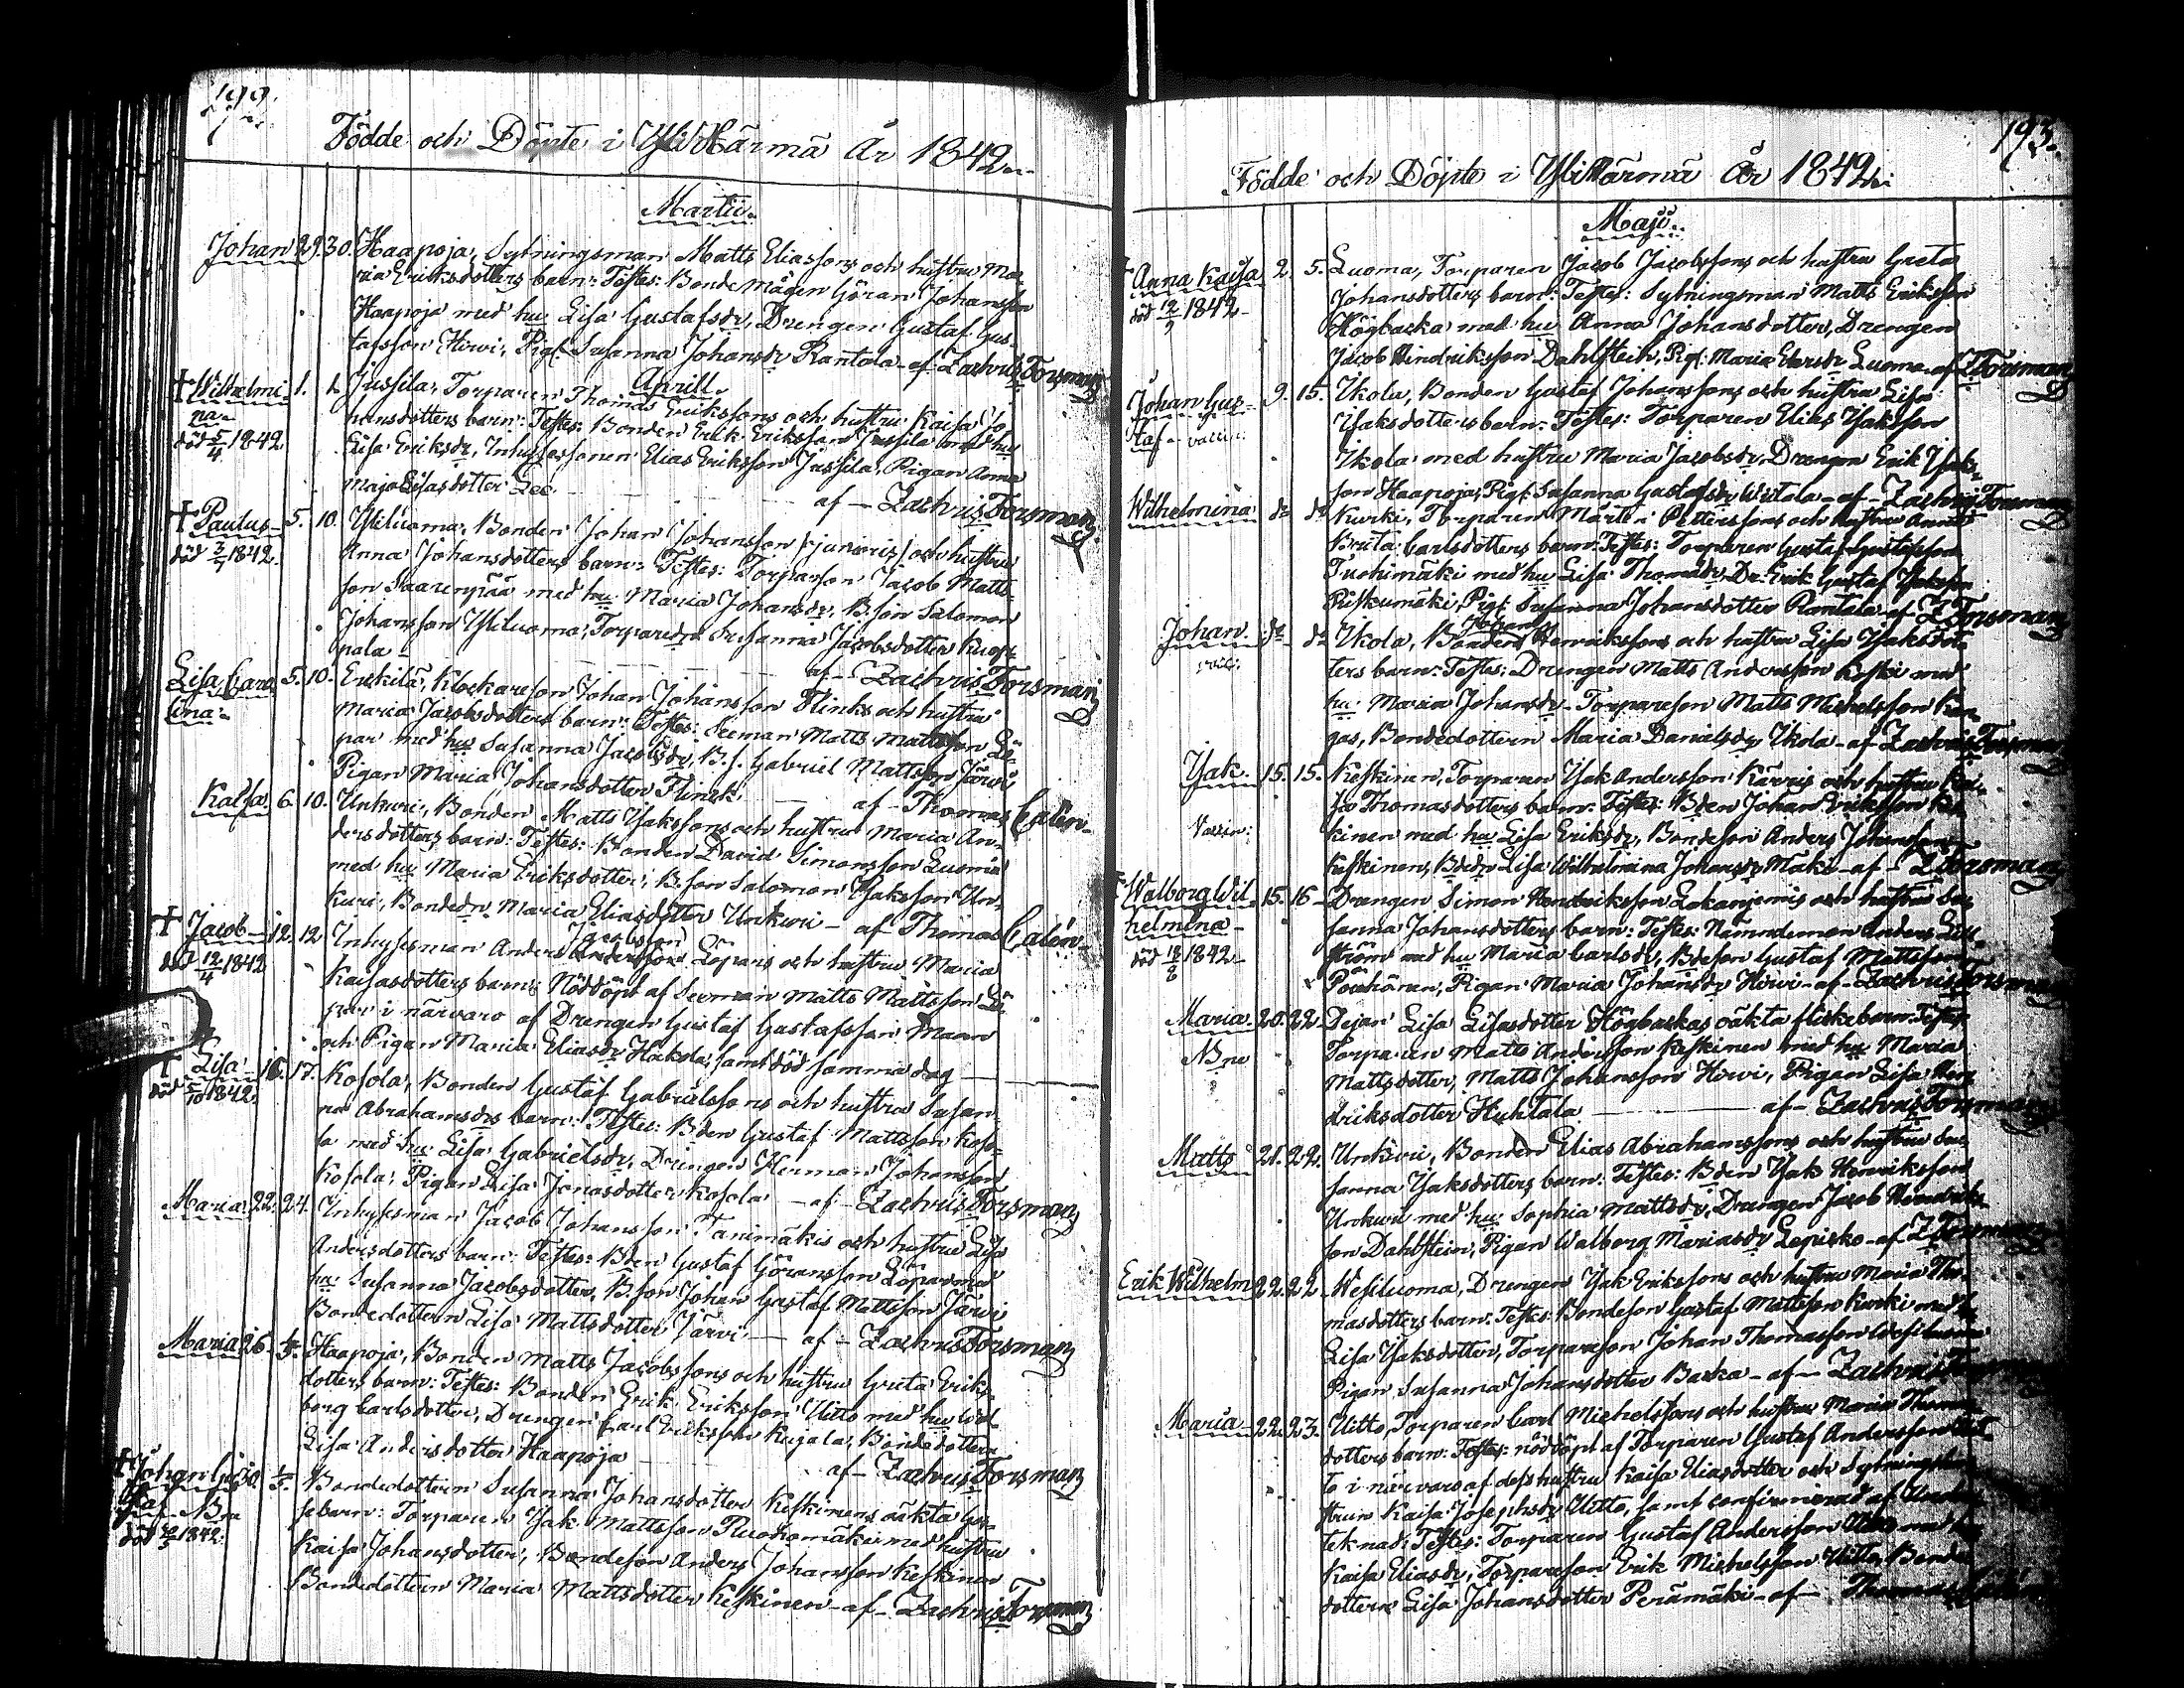 Födde och Döpte i Yli Härmä År 1842
Martii
Johan 29. 30. Haapoja, Sytningsman Matts Eliassons och hustru Ma-
ria Eriksdotters barn: Testes: Bonde Mågen Göran Johansson
Haapoja med hu Lisa Gustafsdr, Drengen Gustaf Gus-
tafsson Hirvi, Pig. Susanna Johansdr Rantala - af Zachris Forsman
Aprill
† Wilhelmi- 1. Jussila, Torparen Thomas Erikssons och hustru Kaisa Jo-
na hansdotters barn: Testes: Bonden Erik Eriksson Jussila med hu
död 5/4 1842 Lisa Eriksdr, Inhysessonen Elias Eriksson Jussila, Pigan Anna
maja Lisasdotter af - Zachris Forsman
† Paulus 5. 10. Yliluoma, Bonden Johan Johansson (junioris) och hustru
död 1842 Anna Johansdotters barn: Testes: Torparson Jacob Matts-
son Saarenpää med hu Maria Johansdr, B.son Salomon
Johansson Yliluoma, Torparedn Susanna Jacobsdotter Kuop-
pala af - Zachris Forsman
Lisa Caro- 5. 10. Erkilä, Klockareson Johan Johansson Flinks och hustru
lina Maria Jacobsdotters barn: Testes: Seeman Matts Mattsson Lö-
par med hu Susanna Jacobsdr, B.s. Gabriel Mattsson Järvi
Pigan Maria Johansdotter Flinck af - Thomas Calén
Kaisa 6. 10. Unkuri, Bonden Matts Isakssons och hustru Maria An-
dersdotters barn: Testes: Bonden David Simonsson Luoma
med hu Maria Eriksdotter, B.son Salomon Isaksson Un-
kuri, Bondedn Maria Eliasdotter Unkuri - af Thomas Calén
† Jacob 12. 12 Inhysesman Anders Jacobsson Löpars och hustru Maria
död 12/4 1842 Kaisasdotters barn: Nöddöpt af Seeman Matts Mattsson Lö-
par i närvaro af Drengen Gustaf Gustafsson
och Pigan Maria Eliasdr Hakola, samt död samma dag
† Lisa 16. 17. Kosola, Bonden Gustaf Gabrielssons och hustru Susan-
död 1842 na Abrahamsdrs barn: Testes: Bden Gustaf Mattsson Koso-
la med hu Lisa Gabrielsdr, Drengen Herman Johansson
Kosola, Pigan Lisa Jonasdotter Kosola - af - Zachris Forsman
Maria 22. 24. Inhysesman Jacob Johansson Tanimäkis och hustru Lisa
Andersdotters barn: Testes: Bden Gustaf Göransson Löpar med
hu Susanna Jacobsdotter, B.son Johan Gustaf Mattsson Järvi
Bondedottern Lisa Mattsdotter Järvi - af - Zachris Forsman
Maria 26. Haapoja, Bonden Matts Jacobssons och hustru Greta Eriks-
dotters barn: Testes: Bonden Erik Eriksson Uitto med hu Wal-
borg Carlsdotter, Drengen Carl Eriksson Kujala, Bondedottern
Lisa Andersdotter Haapoja af - Zachris Forsman
† Johan Gus- 30. Bondedottern Susanna Johansdotter Keskinens oäkta gos-
taf N:ne sebarn: Torparen Isak Mattsson Ruohomäki med hustru
död 1842. Kaisa Johansdotter, Bondeson Anders Johansson Keskinen
Bondedottern Maria Mattsdotter Keskinen - af - Zachris Forsman
193.
Födde och Döpte i Yli Härmä År 1842
Maji
Anna Kaisa 2. 5. Luoma, Torparen Jacob Jacobssons och hustru Greta
död 1842 Johansdotters barn: Testes: Sytningsman Matts Eriksson
Högbacka med hu Anna Johansdotter, Drengen
Jacob Hindriksson Dahlstein, Pig: Maria Luoma - af Z Forsman
Johan Gus- 9. 15. Ikola, Bonden Gustaf Johanssons och hustru Lisa
taf - vaccin: Isaksdotters barn: Testes: Torparen Elias Isaksson
Ikola med hustru Maria Jacobsdr, Drengen Erik Isak-
son Haapoja, Pig: Susanna Gustafsdr - af - Zachris Forsman
Wilhelmina do do Kurki, Torparen Mårten Petterssons och hustru Anna
Brita Carlsdotters barn: Testes: Torparen Gustaf Gustafsson
Tuohimäki med hu Lisa Thomasdr, Dr. Erik Gustaf Isaksson
Pig: Susanna Johansdotter Rantala - af Z Forsman
Johan do do Ikola, Bonden Johan Henrikssons och hustru Lisa Isaksdot-
ters barn: Testes: Drengen Matts Andersson Koski med
hu: Maria Johansdr, Torpareson Matts Michelsson Kan-
gas, Bondedottern Maria Danielsdr Ikola - af Zachris Forsman
Isak 15. 15. Keskinen, Torparen Isak Andersson Kärris och hustru Kai-
sa Thomasdotters barn: Testes: Bden Johan Eriksson Kes-
Vaccin: kinen med hu Lisa Eriksdr, Bondeson Anders Johansson
Keskinen, Bdedr Lisa Wilhelmina Johansdr Mäki - af - Z Forsman
† Walborg Wil- 15. 16 Drengen Simon Hendriksson och hustru Su-
helmina sanna Johansdotters barn: Testes: Nämndeman Anders Lill-
död 1842 ström med hu Maria Carlsdr, Bdeson Gustaf Mattsson
Pigan Maria Johansdr Hirvi - af - Zachris Forsman
Maria 20. 22. Dejan Lisa Lisasdotter Högbackas oäkta flickebarn: Testes:
N:ne Torparen Matts Andersson Keskinen med hu Maria
Mattsdotter, Matts Johansson Hirvi, Pigan Lisa Hen-
driksdotter Huhtala af - Zachris Forsman
Matts 21. 22. Unkuri, Bonden Elias Abrahamssons och hustru Su-
sanna Isaksdotters barn: Testes: Bden Isak Henriksson
Unkuri med hu Sophia Mattsdr, Drengen Jacob Hendriks-
son Dahlstein, Pigan Walborg Mariasdr Lepisko - af Z Forsman
Erik Wilhelm 22. 22 Wesiluoma, Drengen Isak Erikssons och hustru Maria Tho-
masdotters barn: Testes: Bondeson Gustaf Mattsson Kurki med hu
Lisa Isaksdotter, Torpareson Johan Thomasson Wesiluoma
Pigan Susanna Johansdotter Backa - af - Zachris Forsman
Maria 22. 23. Uitto, Torparen Carl Michelssons och hustru Maria Thomas-
dotters barn: Testes: nöddöpt af Torparen Gustaf Andersson Uit-
to i närvaro af dess hustru Kaisa Eliasdotter och Sytningshu-
strun Kaisa Josephsdr Uitto, samt confirmerad af Under-
teknad: Testes: Torparen Gustaf Andersson Uitto med hu
Kaisa Eliasdr, Torpareson Erik Michelsson Uitto, Bonde-
dottern Lisa Johansdotter Perämäki - af - Thomas Calén